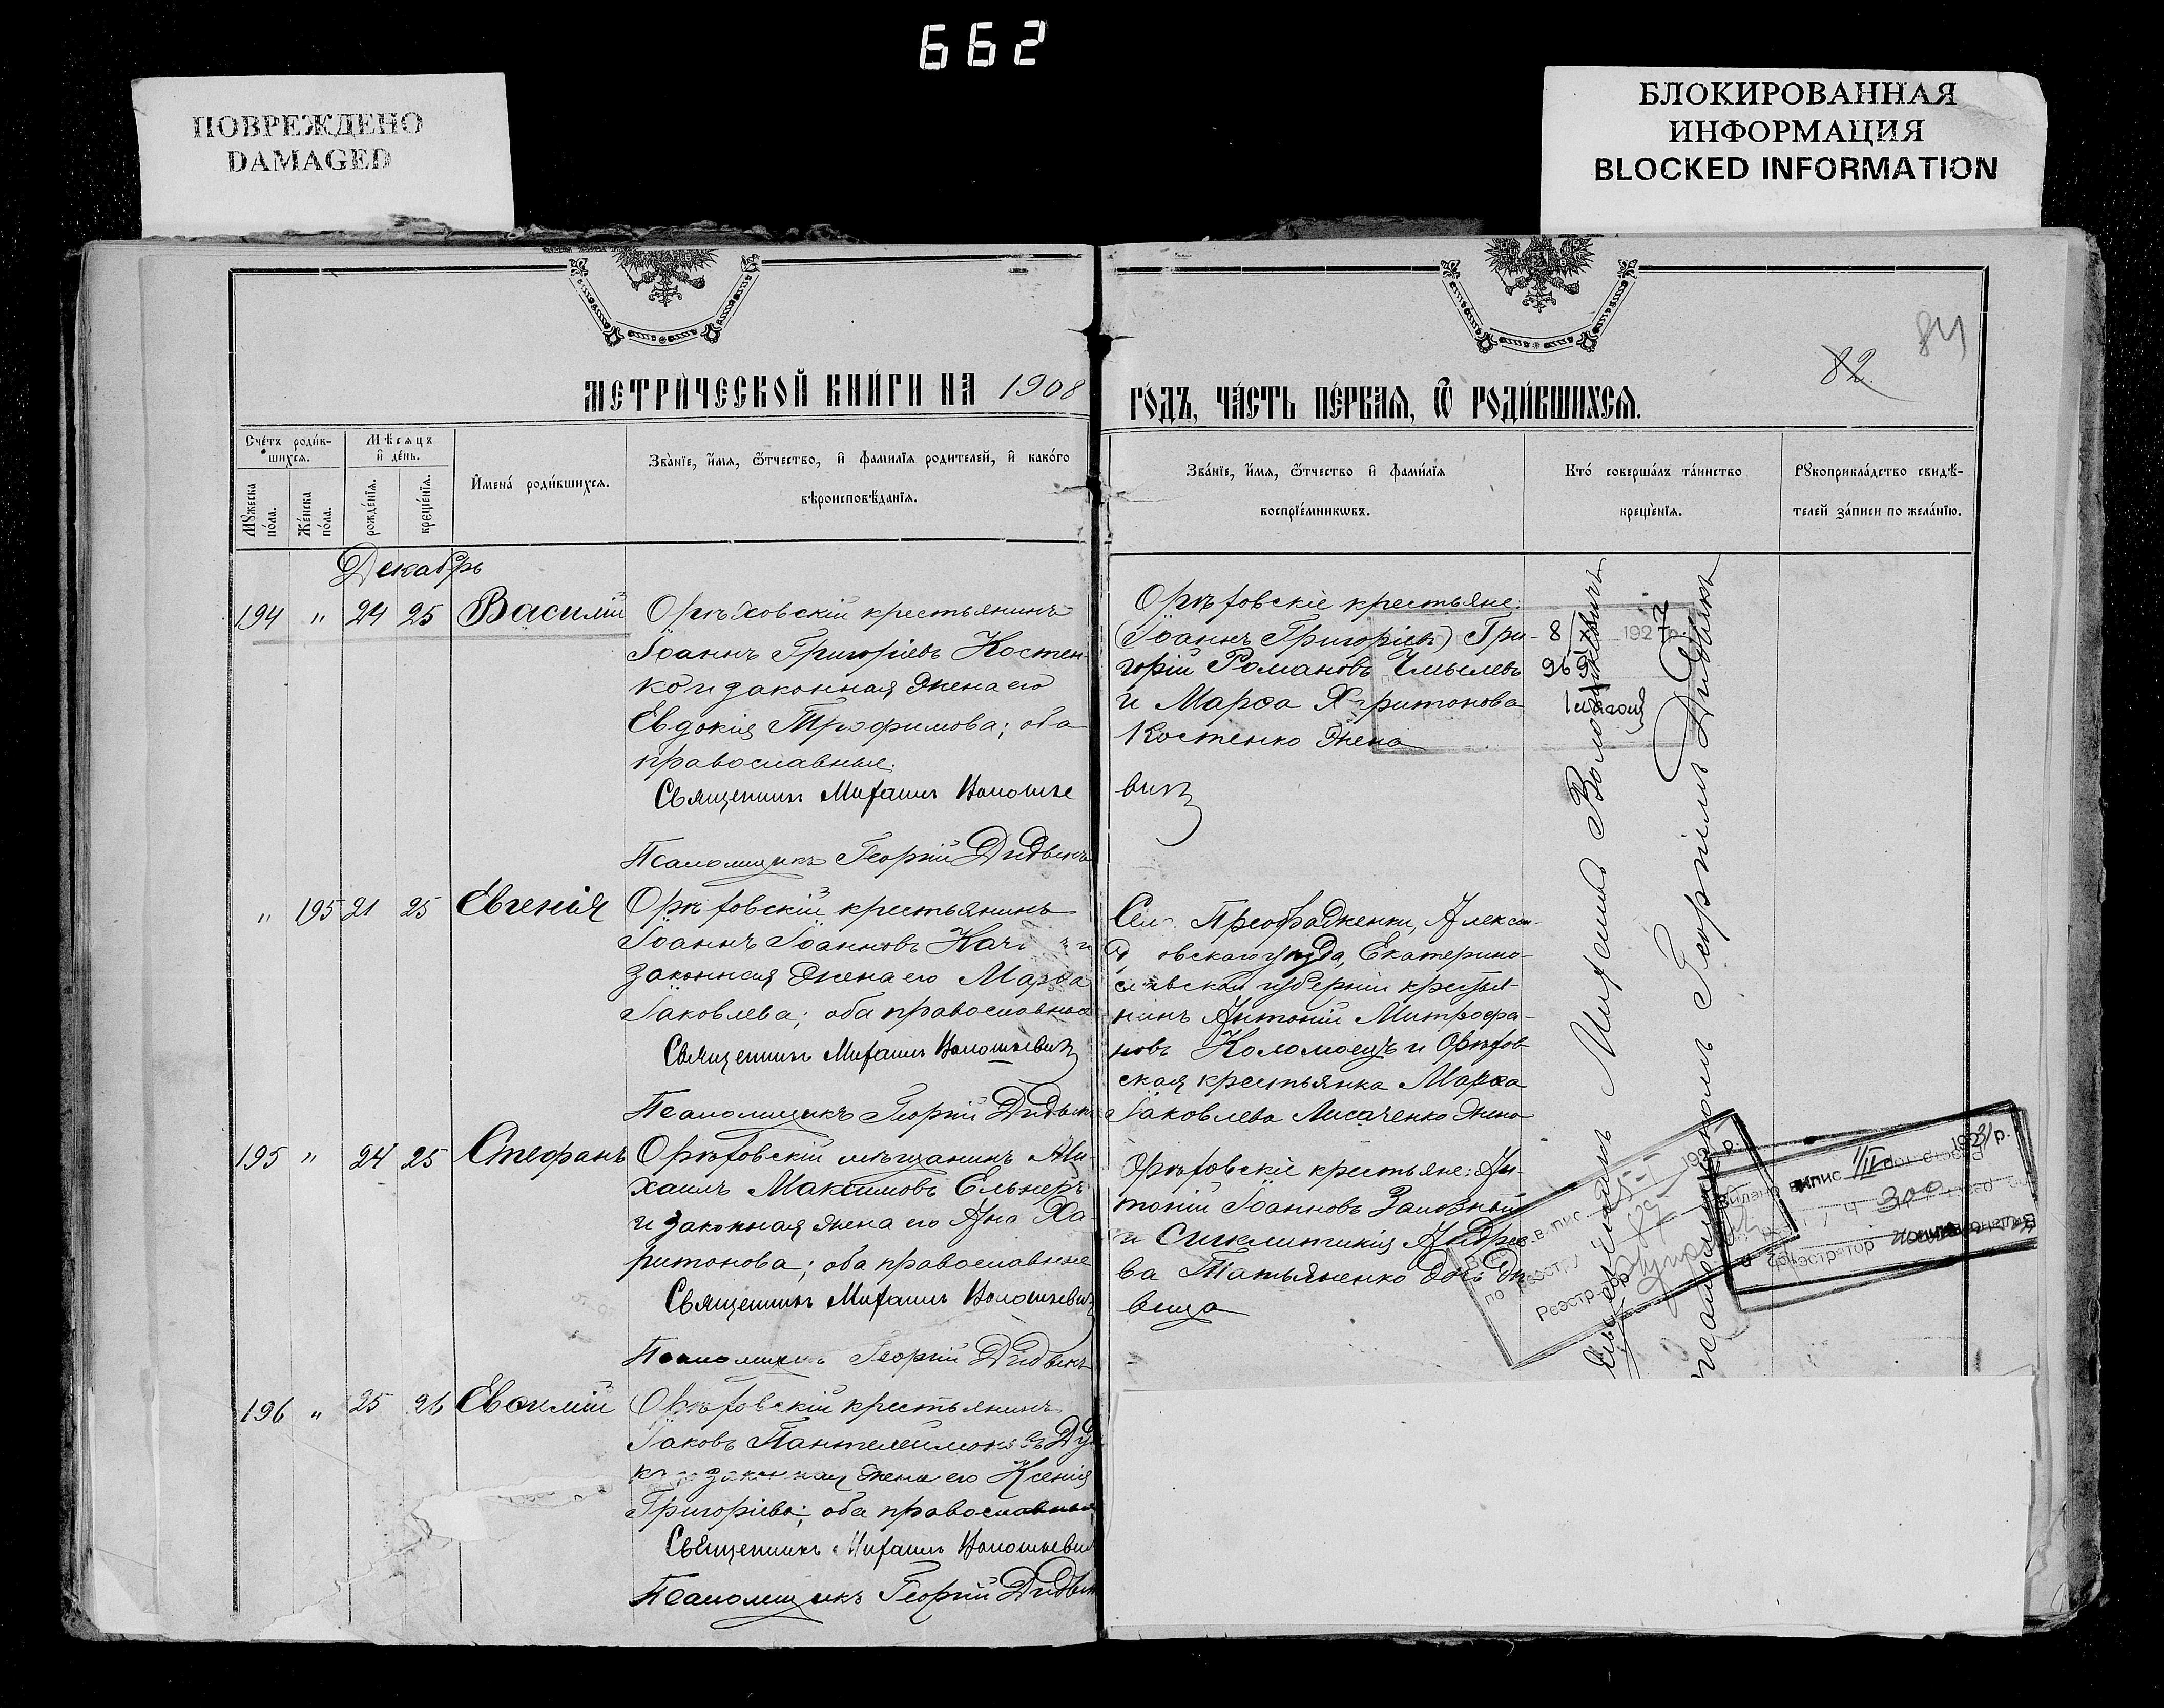 662
ПОВРЕЖДЕНО
DAMAGED
БЛОКИРОВАННАЯ
ИНФОРМАЦИЯ
BLOCKED INFORMATION
84
82
МЕТРИ́ЧЕСКОЙ КНИ́ГИ НА 1908
ГО́ДЪ, ЧА́СТЬ ПЕ́РВАЯ, Ѿ РОДИ́ВШИХСЯ.
Сче́тъ роди́в-
шихся.
Мѣ́сяцъ
и де́нь.
Мꙋ́жеска
по́ла.
Же́нска
по́ла.
рожде́нїя.
креще́нїя.
Имена́ роди́вшихся.
Зва́нїе, и́мя, ѻ́тчество, и фами́лїя родителей, и како́го
вѣроисповѣ́данїя.
Зва́нїе, и́мя, ѻ́тчество и фами́лїя
воспрїе́мникѡвъ.
Кто́ соверша́лъ та́инство
креще́нїя.
Рꙋкоприкла́дство свидѣ́-
телей за́писи по жела́нїю.
Декабрь
194 " 24 25 Василій
Орѣховскій крестьянинъ
Іоаннъ Григоріевъ Костен-
ко и законная жена его
Евдокія Трофимова; оба
православные.
Священникъ Михаилъ Волошке
Псаломщикъ Георгій Дидыкъ
Орѣховскіе крестьяне:
(Іоаннъ Григоріев) Гри-
горій Романовъ Чмылевъ
и Марѳа Харитонова
Костенко жена
вичъ
8 192 р.
969
" 195 21 25 Евгенія
Орѣховскій крестьянинъ
Іоаннъ Іоанновъ и
законная жена его Марѳа
Іаковлева; оба православные
Священникъ Михаилъ Волошкевичъ
Псаломщикъ Георгій Дидыкъ
Сел. Преображенки, Алексан-
д овскаго уѣзда, Екатерино-
славской губерніи крестья-
нинъ Антоній Митрофа-
новъ Коломоецъ и Орѣхов-
ская крестьянка Марѳа
Іаковлева Лисаченко жена
195 " 24 25 Стефанъ
Орѣховскій мѣщанинъ Ми-
хаилъ Максимовъ Ельнеръ
и законная жена его Ана Ха-
ритонова; оба православные
Священникъ Михаилъ Волошкевичъ
Псаломщикъ Георгій Дидыкъ
Орѣховскіе крестьяне: Ан-
тоній Іоанновъ Заможный
и Сигклитикія Андрее-
ва Татьяненко дочь дѣ-
вица
196 " 25 26 Евѳимій
Орѣховскій крестьянинъ
Іаковъ Пантелеимоновъ
и законная жена его Ксенія
Григоріева; оба православные
Священникъ Михаилъ Волошкевич
Псаломщикъ Георгій Дидык
Михаилъ Волошкевичъ
псаломщикомъ Георгіемъ Дидыкъ
випис
по реєстру
Реєстратор
Видано випис
300
реєстратор